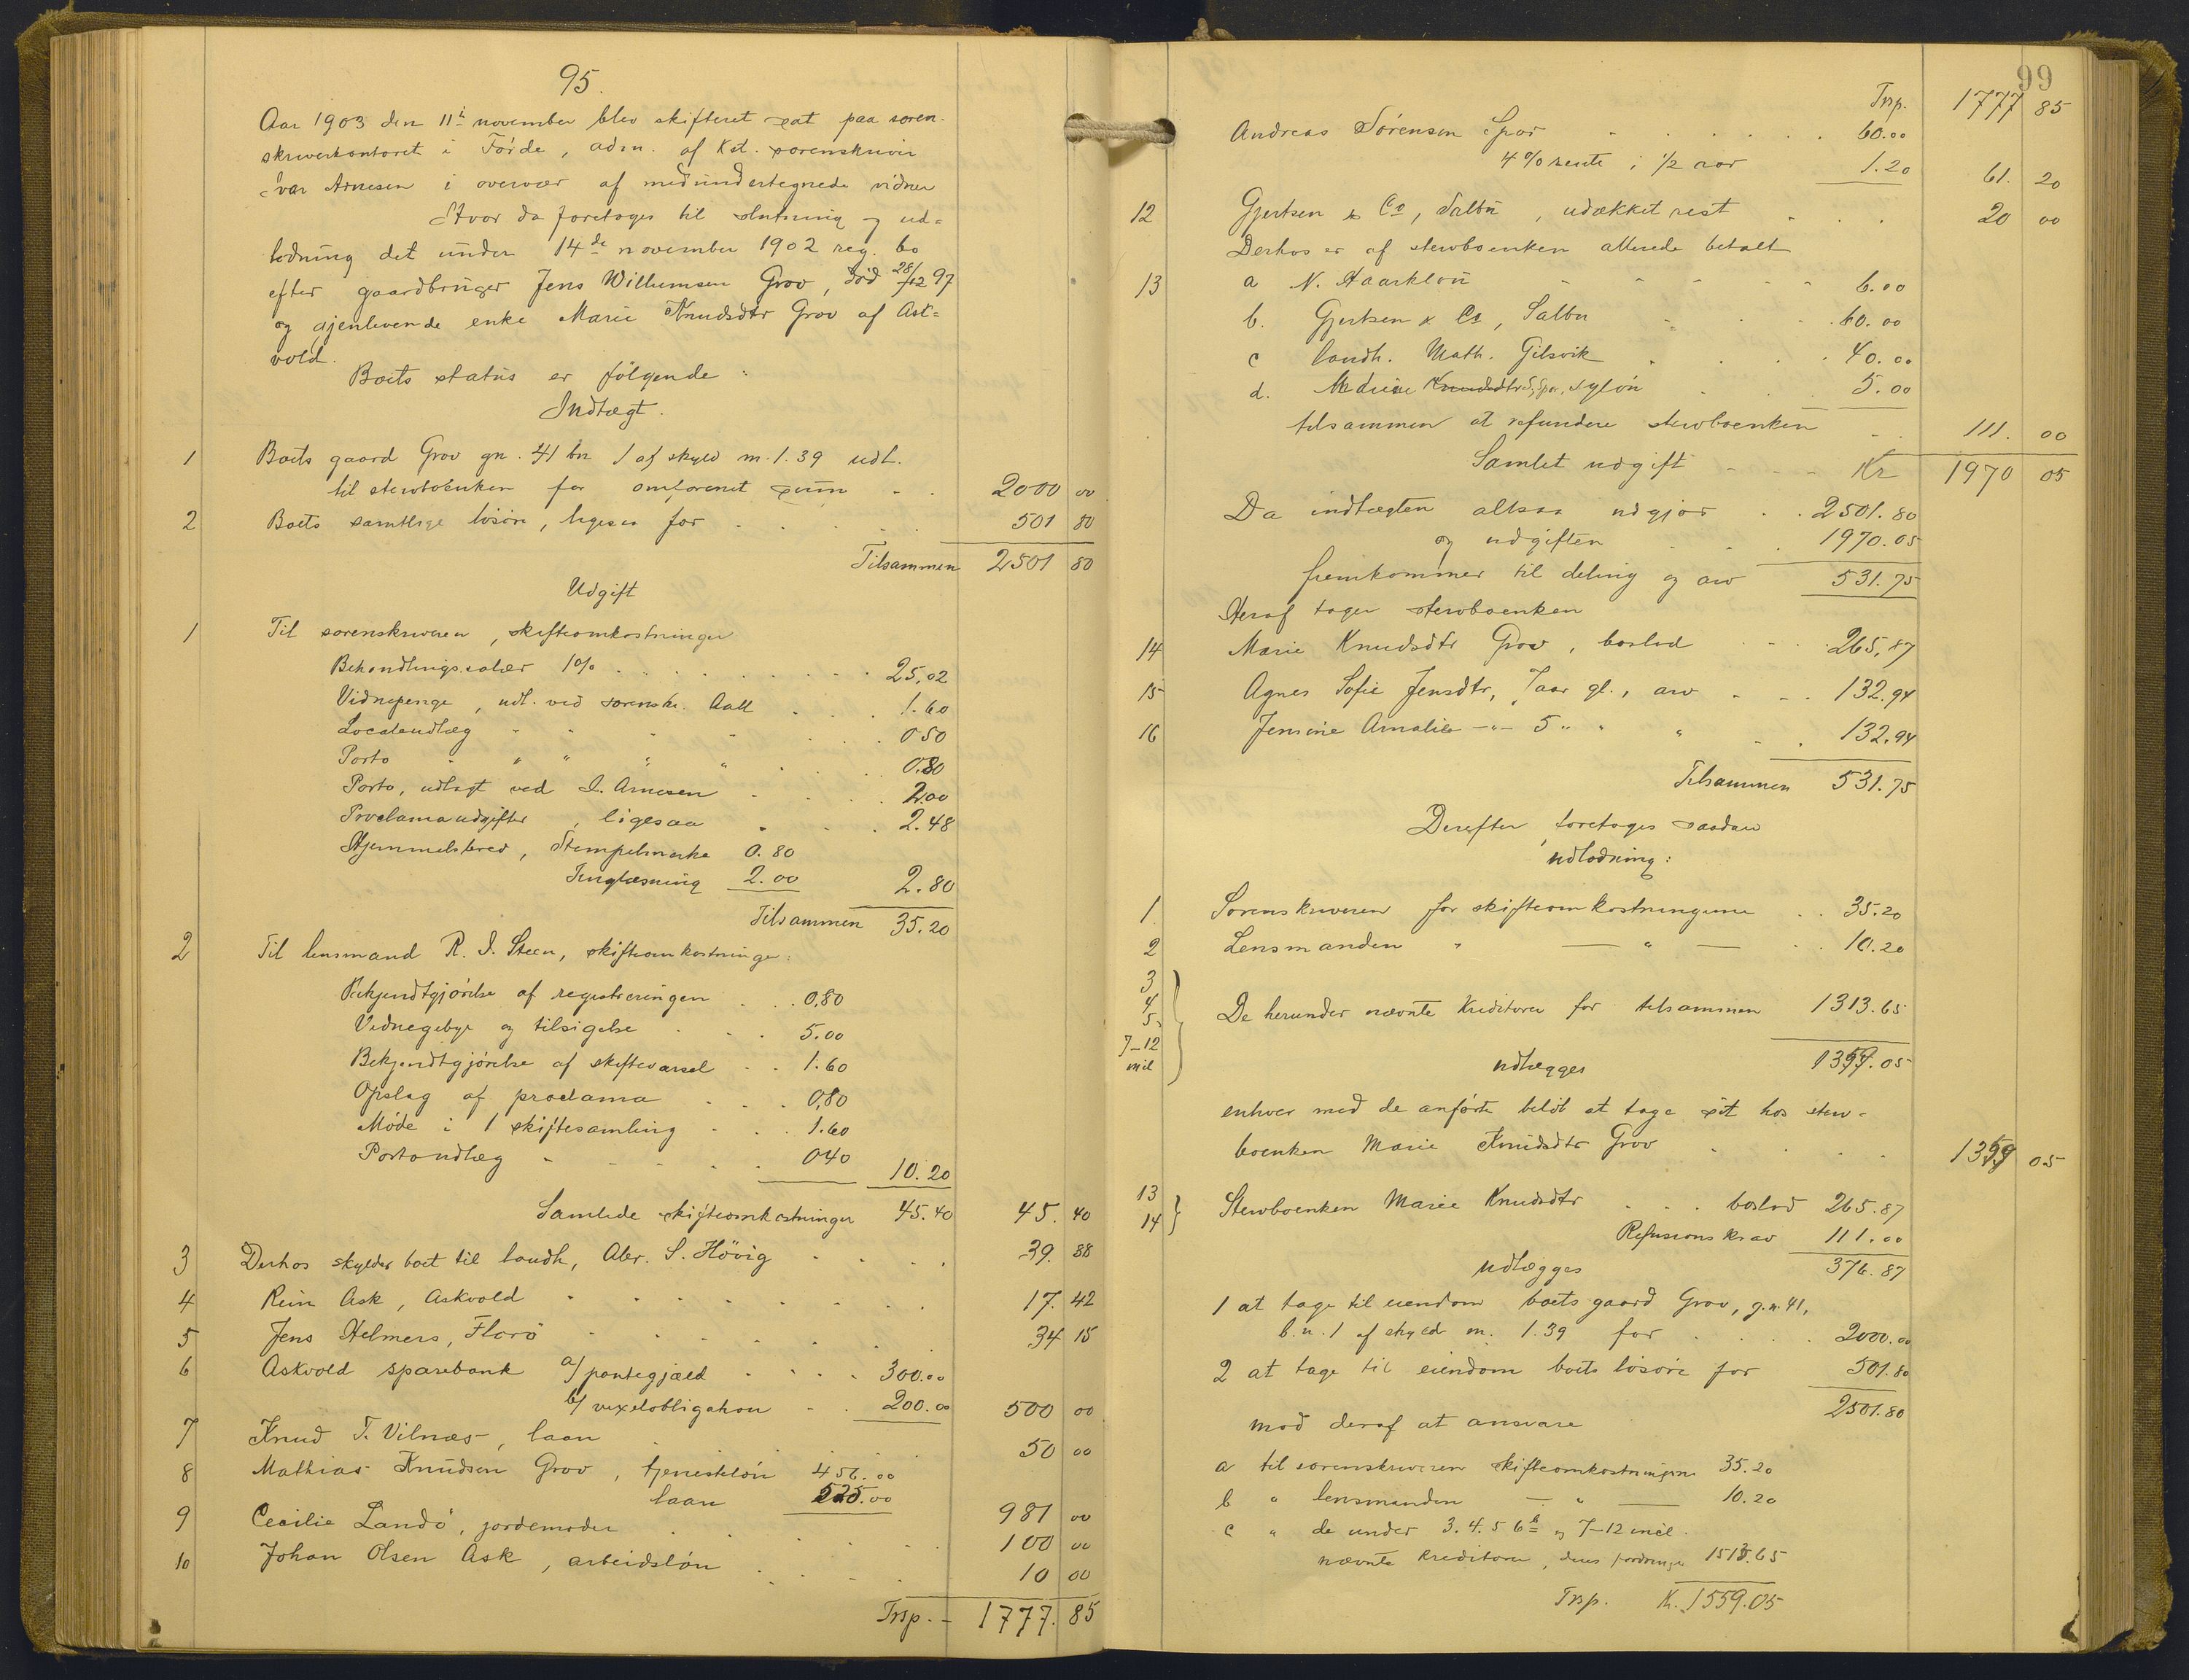 95.
Aar 1903 den 11te november blev skifteret sat paa soren-
skriverkontoret i Förde, adm. af Kst. sorenskriver
Ivar Arnesen i overvær af medundertegnede vidner
Hvor da foretoges til slutning og ud-
lodning det under 14de november 1902 reg. bo
efter gaardbruger Jens Willumsen Grov, död 28/12 97
og gjenlevende enke Marie Knudsdtr Grov af Ask-
vold.
Boets status er fölgende:
Indtægt.
1 Boets gaard Grov gn. 41 bn 1 af skyld m. 1.39 udl.
til stervboenken for omforenet sum - . 2000 00
2 Boets samtlige lösöre, ligesaa for . . . . 501 80
Tilsammen 2501 80
Udgift
1 Til sorenskriveren, skifteomkostninger
Behandlingssalær 1% . . . . . . 25,02
Vidnepenge, udl. ved sorenskr. Aall . . . 1.60
Localeudlæg - - - - . . . 0 50
Porto - " " " " . . . 0.80
Porto, udlagt ved I. Arnesen - . . . 2.00
Proclamaudgifter, ligesaa . . . 2.48
Hjemmelsbrev, Stempelmerke 0.80
Tinglæsning 2.00 2.80
Tilsammen 35.20
2 Til lensmand R. I. Steen, skifteomkostninger:
Bekjendtgjörelse af registreringen . . . 0,80
Vidnegebyr og tilsigelse . . . 5.00
Bekjendtgjörelse af skiftevarsel . . 1.60
Opslag af proclama . . . 0,80
Möde i 1 skiftesamling - . . 1.60
Portoudlæg - - - . . 0 40 10.20
Samlede skifteomkostninger 45.40 45. 40
3 Derhos skylder boet til landh, Abr. S. Hövig . . . . 39. 88
4 Rein Ask, Askvold . . . . . . . 17. 42
5 Jens Helmers, Florö . . . . . . 34 15
6 Askvold sparebank a/ pantegjæld . . . . 300.00
b/ vexelobligation - . 200.00 500 00
7 Knud T. Vilnæs, laan . . . . 50 00
8 Mathias Knudsen Grov, tjenestelön 456.00
laan 525.00 981 00
9 Cecilie Landö, jordemoder . . . . 100 00
10 Johan Olsen Ask, arbeidslön . . . . 10 00
Trsp. - 1777. 85
99
Trsp. 1777 85
Andreas Sörensen Spor . . . . . 60.00
4% rente i 1/2 aar 1.20 61. 20
12 Gjertsen & Co, Salbu, udækket rest - . . 20 00
Derhos er af stervboenken allerede betalt
13 a N. Haarklou - - - - - 6.00
b. Gjertsen & Co, Salbu - . - 60.00
c landh. Math. Gilsvik . . . . 40.00
d. Madsine Knudsdtr Spor, sylön . . . 5.00
tilsammen at refundere stervboenken - . 111. 00
Samlet udgift - - - Kr 1970 05
Da indtægten altsaa udgjör . . 2501.80
og udgiften . . . 1970.05
fremkommer til deling og arv - 531.75
Heraf tager stervboenken
14 Marie Knudsdtr Grov, boslod - - - 265,87
15 Agnes Sofie Jensdtr, 7 aar gl., arv - - . 132.94
16 Jensine Amalie -"- 5 " " " - . 132.94
Tilsammen 531.75
Derefter foretoges saadan
udlodning:
1 Sorenskriveren for skifteomkostningerne . . 35.20
2 Lensmanden " — " — . . 10.20
3
4
5
7-12
incl
De herunder nævnte Kreditorer for tilsammen 1313.65
udlægges 1359.05
enhver med de anförte belöb at tage sit hos sterv-
boenken Marie Knudsdtr Grov . . . . 1359 05
13
14 Stervboenken Marie Knudsdtr . . . boslod 265.87
Refusionskrav 111.00
udlægges 376.87
1 at tage til eiendom boets gaard Grov, g.n. 41,
b.n. 1 af skyld m. 1.39 for . . . . 2000.00
2 at tage til eiendom boets lösöre for 501.80
mod deraf at ansvare 2501.80
a til sorenskriveren skifteomkostningerne 35.20
b " lensmanden — " — 10.20
c " de under 3. 4. 5 6b og 7-12 incl.
nævnte Kreditorer, deres fordringer 1513.65
Trsp. Kr. 1559.05